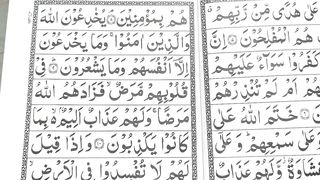 عَلٰى هُدًى مِّنْ رَّبِّهِمْ
هُمُ الْمُفْلِحُوْنَ ۝
كَفَرُوْا سَوَآءٌ عَلَيْهِمْ
اَمْ لَمْ تُنْذِرْهُمْ
۝ خَتَمَ اللّٰهُ عَلٰى
عَلٰى سَمْعِهِمْ ؕ وَعَلٰى
غِشَاوَةٌ وَّلَهُمْ عَذَابٌ
هُمْ بِمُؤْمِنِيْنَ ۝ يُخٰدِعُوْنَ اللّٰهَ
وَالَّذِيْنَ اٰمَنُوْا ۚ وَمَا يَخْدَعُوْنَ
اِلَّاۤ اَنْفُسَهُمْ وَمَا يَشْعُرُوْنَ ۝ فِيْ
قُلُوْبِهِمْ مَّرَضٌ ۙ فَزَادَهُمُ اللّٰهُ
مَرَضًا ۚ وَلَهُمْ عَذَابٌ اَلِيْمٌۢ ۙ بِمَا
كَانُوْا يَكْذِبُوْنَ ۝ وَاِذَا قِيْلَ
لَهُمْ لَا تُفْسِدُوْا فِي الْاَرْضِ ۙ